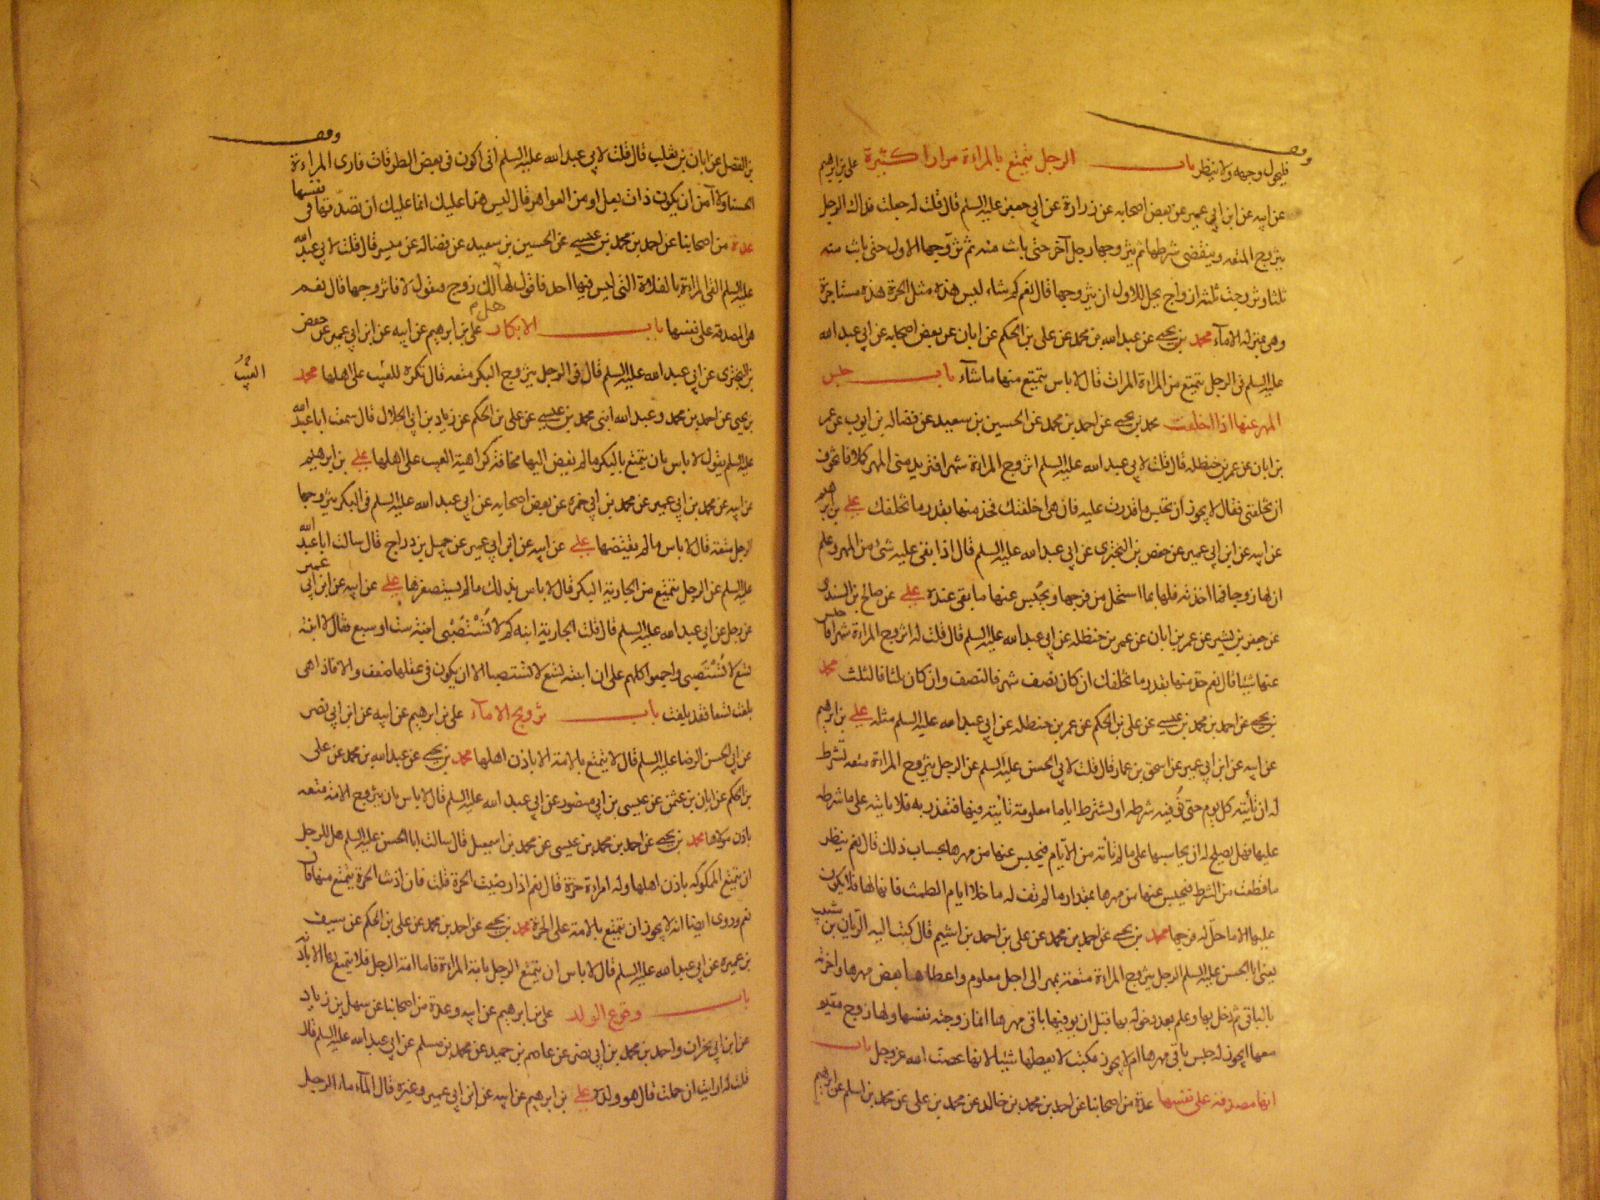 وقف
فليحول وجهه ولا ينظر باب الرجل يتمتع بالمراءة مرارا كثيرة علي بن ابرهيم
عن ابيه عن ابن ابي عمير عن بعض اصحابه عن زرارة عن ابي جعفر عليه السلم قال قلت له جعلت فداك الرجل
يتزوج المتعه وينقضي شرطها ثم يتزوجها رجل آخر حتى بانت منه ثم تزوجها الاول حتى بانت منه
ثلثا وتزوجت ثلثة ازواج يحل للاول ان يتزوجها قال نعم كم شاء ليس هذه مثل الحرة هذه مستاجرة
وهي بمنزلة الاماء محمد بن يحيى عن عبدالله بن محمد عن علي بن الحكم عن ابان عن بعض اصحابه عن ابي عبدالله
عليه السلم في الرجل يتمتع من المراءة المرات قال لا باس يتمتع منها ما شآء باب حبس
المهر عنها اذا اخلفت محمد بن يحيى عن احمد بن محمد عن الحسين بن سعيد عن فضالة بن ايوب عن عمر
بن ابان عن عمر بن حنظله قال قلت لابي عبد الله عليه السلم اتزوج المراءة شهرا فتريد مني المهر كملا فاتخوف
ان تخلفني فقال لا يجوز ان تحبس ما قدرت عليه فان هي اخلفتك فخذ منها بقدر ما تخلفك علي بن ابرهيم
عن ابيه عن ابن ابي عمير عن حفص بن البختري عن ابي عبدالله عليه السلم قال اذا بقي عليه شئ من المهر وعلم
ان لها زوجا فما اخذته فلها بما استحل من فرجها ويحبس عنها ما بقي عنده علي عن صالح بن السندي
عن جعفر بن بشير عن عمر بن ابان عن عمر بن حنظله عن ابي عبدالله عليه السلم قال قلت له اتزوج المراءة شهرا فاحبس
عنها شيئا قال نعم خذ منها بقدر ما تخلفك ان كان نصف شهر فالنصف وان كان ثلثا فالثلث محمد
بن يحيى عن احمد بن محمد بن عيسى عن علي بن الحكم عن عمر بن حنظله عن ابي عبدالله عليه السلم مثله علي بن ابرهيم
عن ابيه عن ابن ابي عمير عن اسحق بن عمار قال قلت لابي الحسن عليه السلم عن الرجل يتزوج المراءة متعه تشترط
له ان تأتيه كل يوم حتى توفيه شرطه او يشترط اياما معلومة تأتيه فيها فتغدر به فلا تاتيه على ما شرطه
عليها فهل يصلح له ان يحاسبها على ما لم تأته من الايام فيحبس عنها من مهرها بحساب ذلك قال نعم ينظر
ما قطعت من الشرط فيحبس عنها من مهرها بمقدار ما لم تف له ما خلا ايام الطمث فانها لها فلا يكون
عليها الا ما حل له فرجها محمد بن يحيى عن احمد بن محمد عن علي بن احمد بن اشيم قال كتب اليه الريان بن شبيب
يعني ابا الحسن عليه السلم الرجل يتزوج المراءة متعة بمهر الى اجل معلوم واعطاها بعض مهرها واخرته
بالباقي ثم دخل بها وعلم بعد دخوله بها قبل ان يوفيها باقي مهرها انما زوجته نفسها ولها زوج مقيم
معها ايجوز له حبس باقي مهرها ام لا يجوز فكتب لا يعطها شيئا لانها عصت الله عز وجل باب
انها مصدقة على نفسها عدة من اصحابنا عن احمد بن محمد بن خالد عن محمد بن علي عن محمد بن اسلم عن ابرهيم
وقف
بن الفضل عن ابان بن تغلب قال قلت لابي عبدالله عليه السلم اني اكون في بعض الطرقات فارى المراءة
الحسناء ولا آمن ان يكون ذات بعل او من العواهر قال ليس هذا عليك انما عليك ان تصدقها في نفسها
عدة من اصحابنا عن احمد بن محمد بن عيسى عن الحسين بن سعيد عن فضالة عن ميسر قال قلت لابي عبدالله
عليه السلم القى المراءة بالفلاة التي ليس فيها احد فاقول لها هل لك زوج فتقول لا فاتزوجها قال نعم
هي المصدقة على نفسها باب الابكار علي بن ابرهيم عن ابيه عن ابن ابي عمير عن حفص
بن البختري عن ابي عبدالله عليه السلم قال في الرجل يتزوج البكر متعه قال تكره للعيب على اهلها محمد
العيب
بن يحيى عن احمد بن محمد وعبد الله ابني محمد بن عيسى عن علي بن الحكم عن زياد بن ابي الحلال قال سمعت ابا عبدالله
عليه السلم يقول لا باس بان يتمتع بالبكر ما لم يفض اليها مخافة كراهية العيب على اهلها علي بن ابرهيم
عن ابيه عن محمد بن ابي عمير عن محمد بن ابي حمزه عن بعض اصحابه عن ابي عبد الله عليه السلم في البكر يتزوجها
الرجل متعة قال لا باس ما لم يفتضها علي عن ابيه عن ابن ابي عمير عن جميل بن دراج قال سالت ابا عبدالله
عليه السلم عن الرجل يتمتع من الجارية البكر قال لا باس بذلك ما لم يستصغرها علي عن ابيه عن ابن ابي عمير
عن رجل عن ابي عبد الله عليه السلم قال قلت الجارية ابنة كم لا تستصبى ابنة ست او سبع فقال لا ابنة
تسع لا تستصبى واجمعوا كلهم على ان ابنة تسع لا تستصبا الا ان يكون في عقلها ضعف والا فاذا هي
بلغت تسعا فقد بلغت باب تزويج الامآء علي بن ابرهيم عن ابيه عن ابن ابي نصر
عن ابي الحسن الرضا عليه السلم قال لا يتمتع بالامة الا باذن اهلها محمد بن يحيى عن عبدالله بن محمد عن علي
بن الحكم عن ابان بن عثمن عن عيسى بن ابي منصور عن ابي عبد الله عليه السلم قال لا باس بان يتزوج الامة متعه
باذن مولاها محمد بن يحيى عن احمد بن محمد بن عيسى عن محمد بن اسمعيل قال سالت ابا الحسن عليه السلم هل للرجل
ان يتمتع المملوكه باذن اهلها وله امراءة حرة قال نعم اذا رضيت الحرة قلت فان اذنت الحرة يتمتع منها قال
نعم وروى ايضا انه لا يجوز ان يتمتع بالامة على الحرة محمد بن يحيى عن احمد بن محمد عن علي بن الحكم عن سيف
بن عميره عن ابي عبدالله عليه السلم قال لا باس ان يتمتع الرجل بامة المراءة فاما امة الرجل فلا يتمتع بها الا باذنه
باب وقوع الولد علي بن ابرهيم عن ابيه وعدة من اصحابنا عن سهل بن زياد
عن ابن ابي نجران واحمد بن محمد بن ابي نصر عن عاصم بن حميد عن محمد بن مسلم عن ابي عبدالله عليه السلم قال
قلت له ارايت ان حملت قال هو ولده علي بن ابرهيم عن ابيه عن ابن ابي عمير وغيره قال المآء ماء الرجل